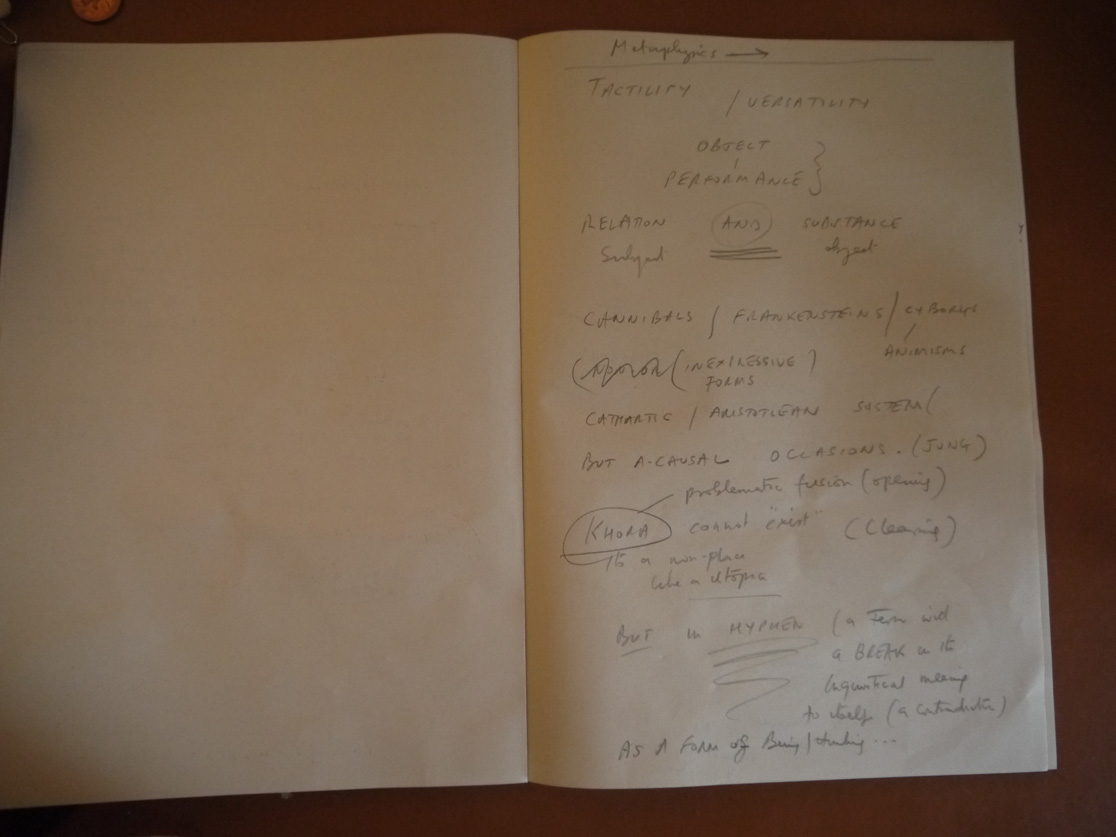 Metaphysics →
TACTILITY / VERSATILITY
OBJECT
PERFORMANCE
RELATION AND SUBSTANCE
Subject object
CANNIBALS / FRANKENSTEINS / CYBORGS
ANIMISMS
(INEXPRESSIVE)
FORMS
CATHARTIC / ARISTOTLEAN SYSTEM(
BUT A-CAUSAL OCCASIONS. (JUNG)
problematic fusion (opening)
KHORA cannot "exist" (Clearing)
Its a non-place
like a Utopia
BUT in HYPHEN (a Term with
a BREAK in its
linguistical meaning
to itself (a contradiction)
AS A FORM of Being/thinking...